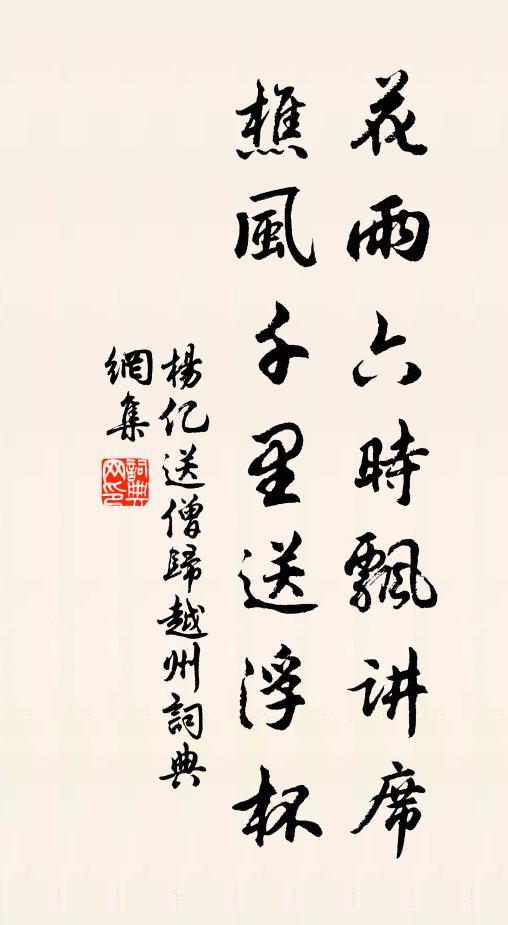 花雨六時飄讲席
樵風千里送浮杯
楊億送僧歸越州詞典
網集
詞典
网印